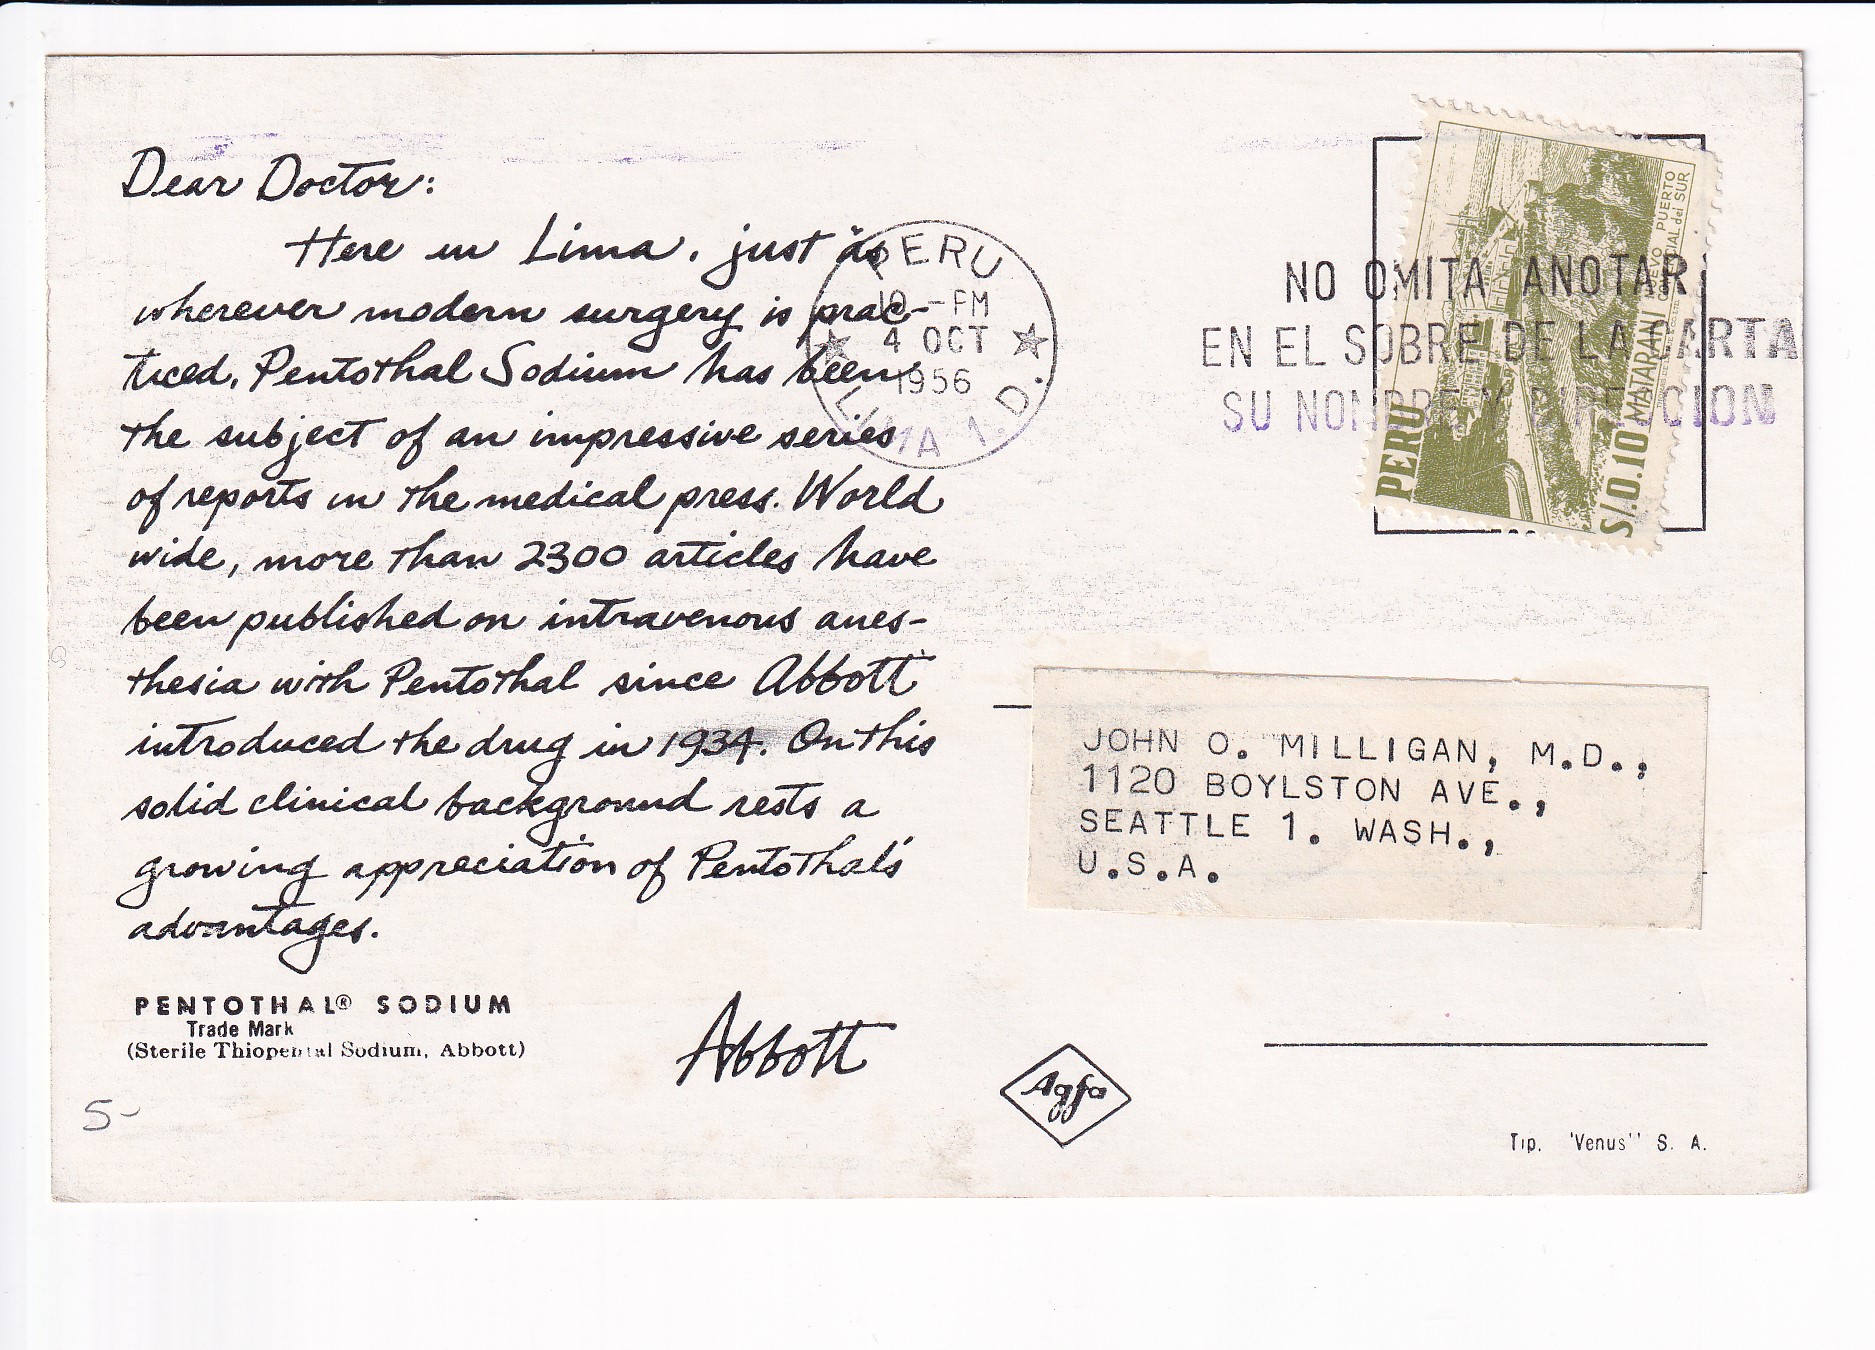 Dear Doctor:
Here in Lima, just as
wherever modern surgery is prac-
ticed, Pentothal Sodium has been
the subject of an impressive series
of reports in the medical press. World
wide, more than 2300 articles have
been published on intravenous anes-
thesia with Pentothal since Abbott
introduced the drug in 1934. On this
solid clinical background rests a
growing appreciation of Pentothal's
advantages.
PENTOTHAL® SODIUM
Trade Mark
(Sterile Thiopental Sodium, Abbott)
Abbott
5-
PERU
10-PM
4 OCT
1956
LIMA 1. D.
NO OMITA ANOTAR
EN EL SOBRE DE LA CARTA
SU NOMBRE Y DIRECCION
PERU
S/.0.10
MATARANI NUEVO PUERTO
COMERCIAL del SUR
JOHN O. MILLIGAN, M.D.,
1120 BOYLSTON AVE.,
SEATTLE 1. WASH.,
U.S.A.
Agfa
Tip. 'Venus'' S. A.